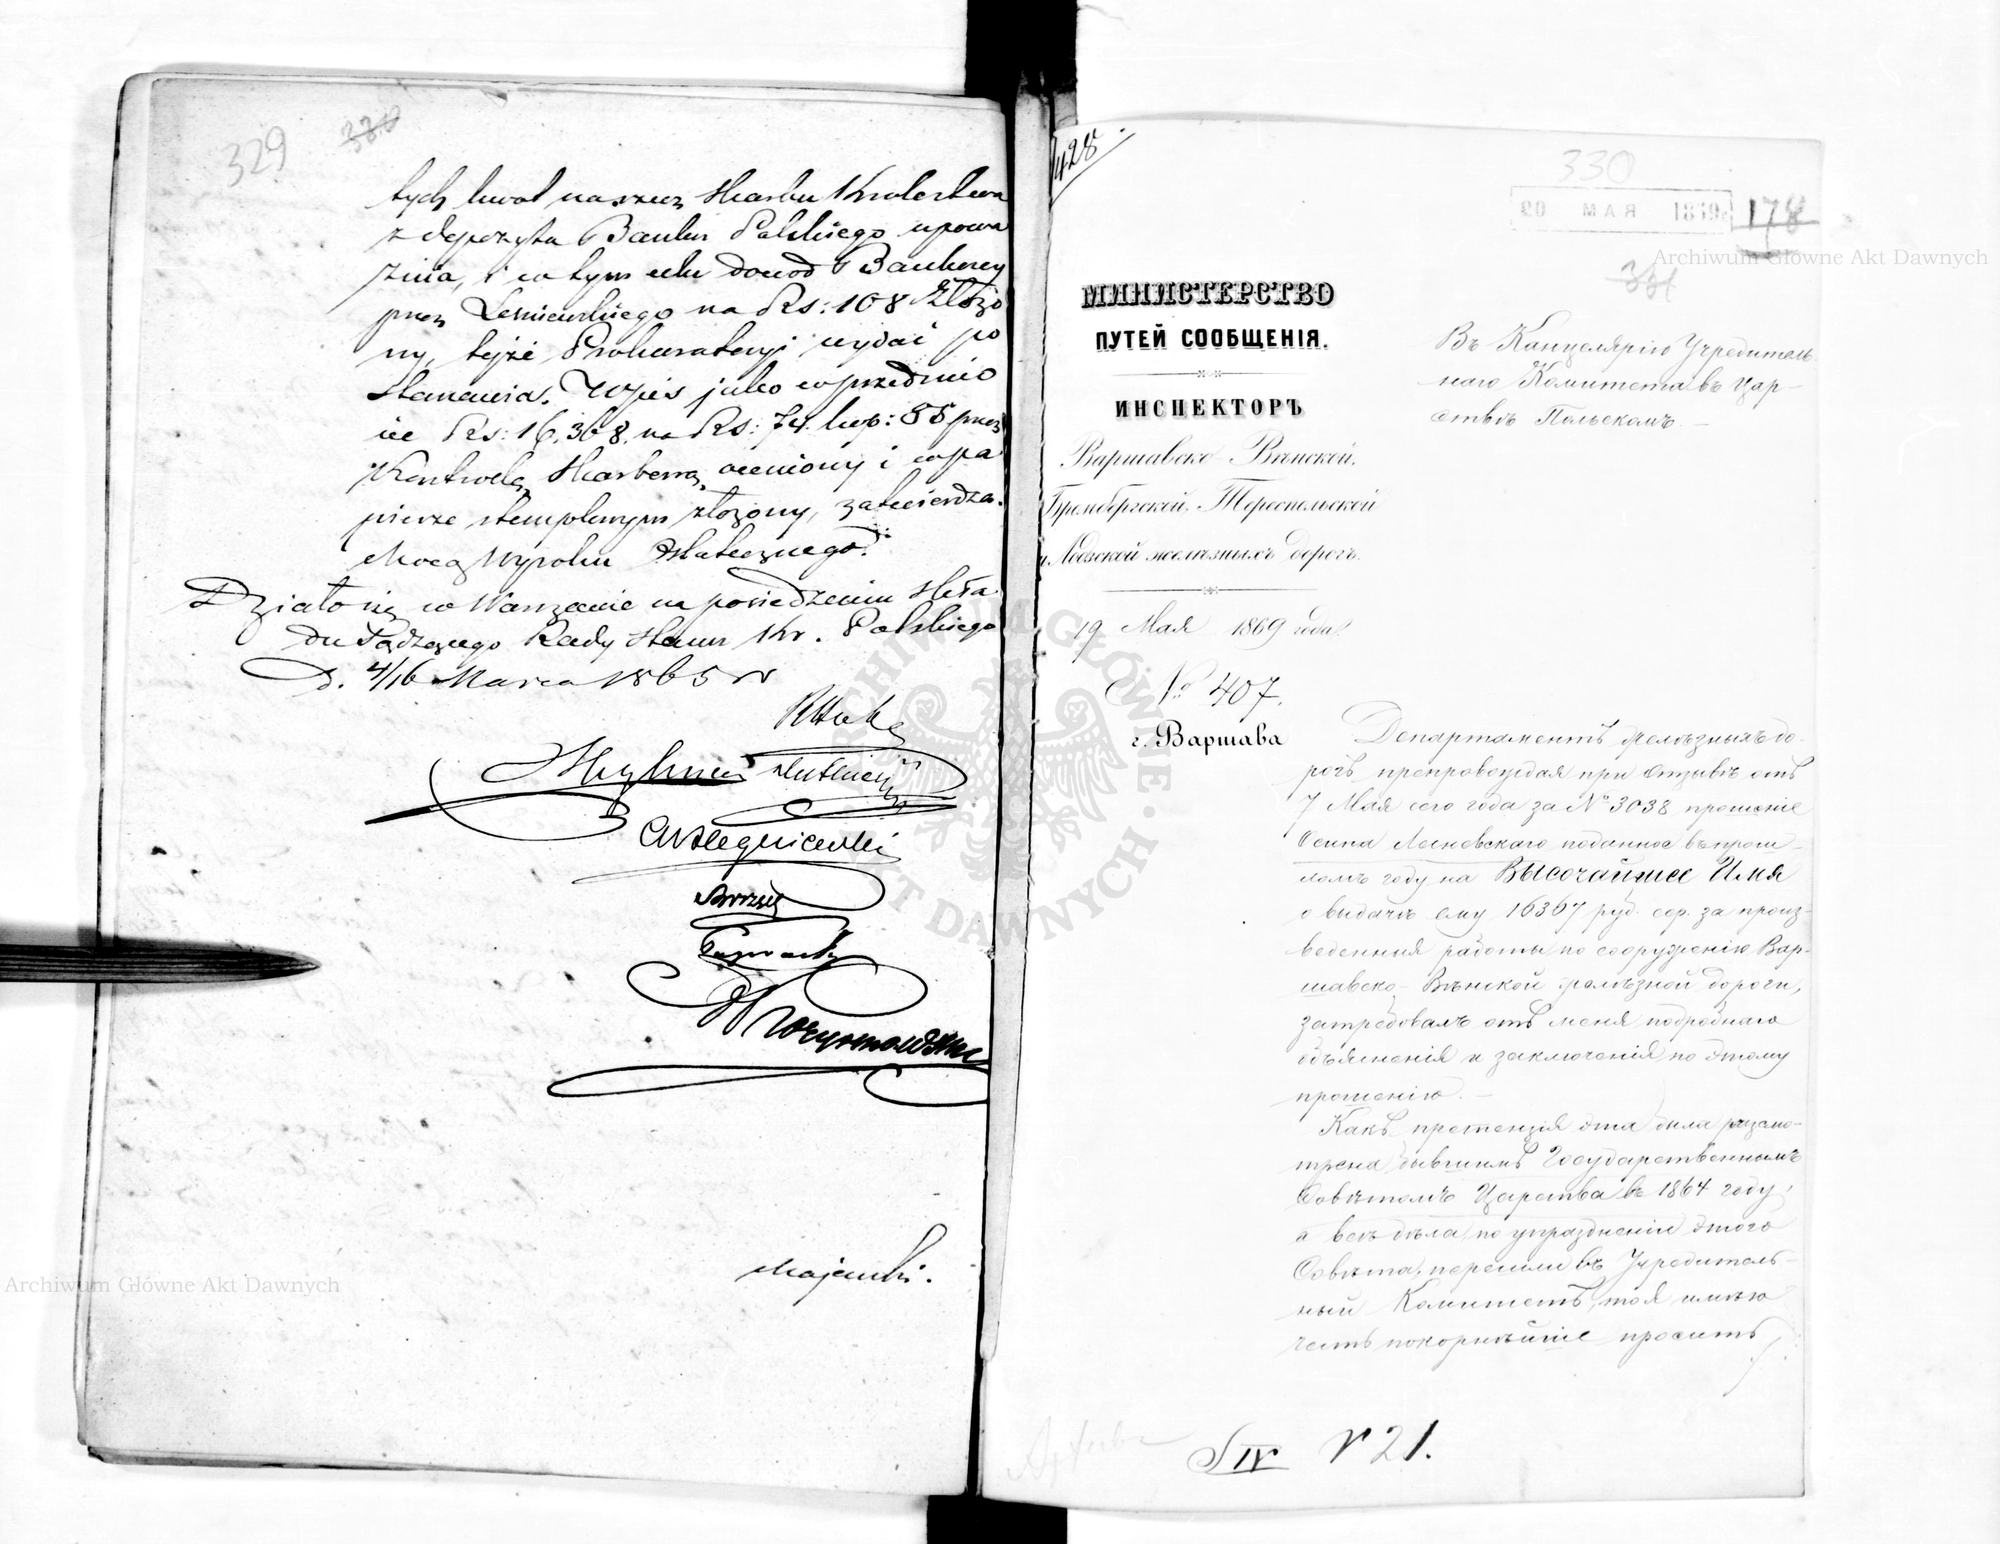 329
tych kwot na rzecz Skarbu Królestwa
z depozytu Banku Polskiego upowa
żnia, i w tym celu dowód Bankowy
przez Leśniewskiego na Rs: 108 złożo
ny, tejże Prokuratoryi wydać po
stanawia. Wpis jako w przedmio
cie Rs: 16,368. na Rs: 74 kop: 88 przez
Kontrolę Skarbową oceniony i w pa
pierze stemplowym złożony, zatwierdza.
Mocą Wyroku Ostatecznego.
Działo się w Warszawie na posiedzeniu Skła
du Sądzącego Rady Stanu Kr. Polskiego
D. 4/16 Marca 1865 r
Majewski.
428
330
20 МАЯ 1869
178
331
Archiwum Główne Akt Dawnych
МИНИСТЕРСТВО
ПУТЕЙ СООБЩЕНІЯ.
ИНСПЕКТОРЪ
Варшавско-Вѣнской,
Бромбергской, Тереспольской
и Лодзской желѣзныхъ дорогъ.
19 Мая 1869 года.
№ 407.
г. Варшава
Въ Канцелярію Учредитель-
наго Комитета въ Цар-
ствѣ Польскомъ.
Департаментъ желѣзныхъ до-
рогъ, препровождая при отзывѣ отъ
7 Мая сего года за № 3038 прошеніе
Осипа Лесневскаго поданное въ прош-
ломъ году на Высочайшее Имя
о выдачѣ ему 16367 руб. сер. за произ-
веденныя работы по сооруженію Вар-
шавско-Вѣнской желѣзной дороги,
затребовалъ отъ меня подробнаго
объясненія и заключенія по этому
прошенію.
Какъ претензія эта была разсмо-
трена бывшимъ Государственнымъ
Совѣтомъ Царства въ 1864 году,
а всѣ дѣла, по упраздненіи этого
Совѣта, перешли въ Учредитель-
ный Комитетъ, то я имѣю
честь покорнѣйше просить
S IV № 21.
ARCHIWUM GŁÓWNE AKT DAWNYCH
Archiwum Główne Akt Dawnych